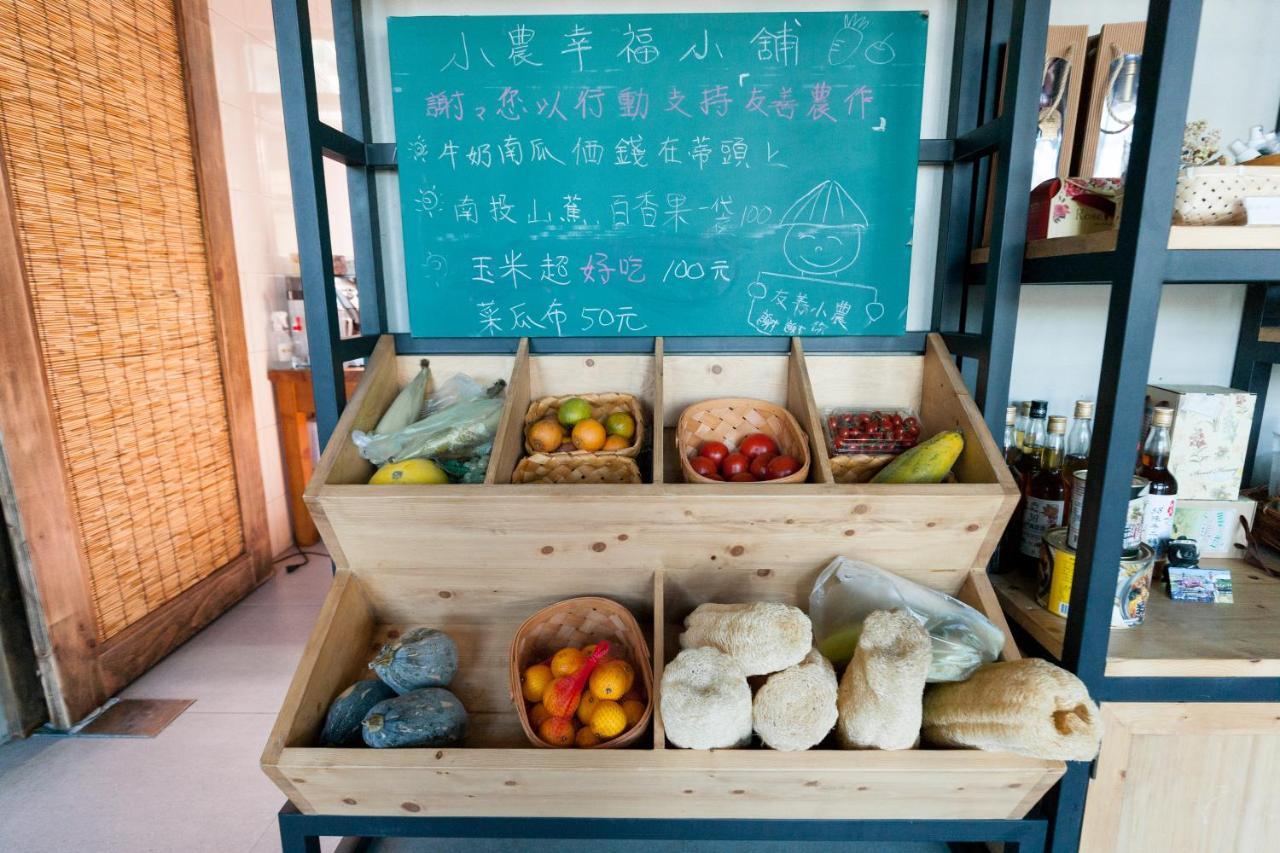 小農幸福小舖
謝々您以行動支持「友善農作」
牛奶南瓜價錢在蒂頭上
南投山蕉 百香果一袋100
玉米超好吃 100元
菜瓜布50元
友善小農
謝謝你
Rose